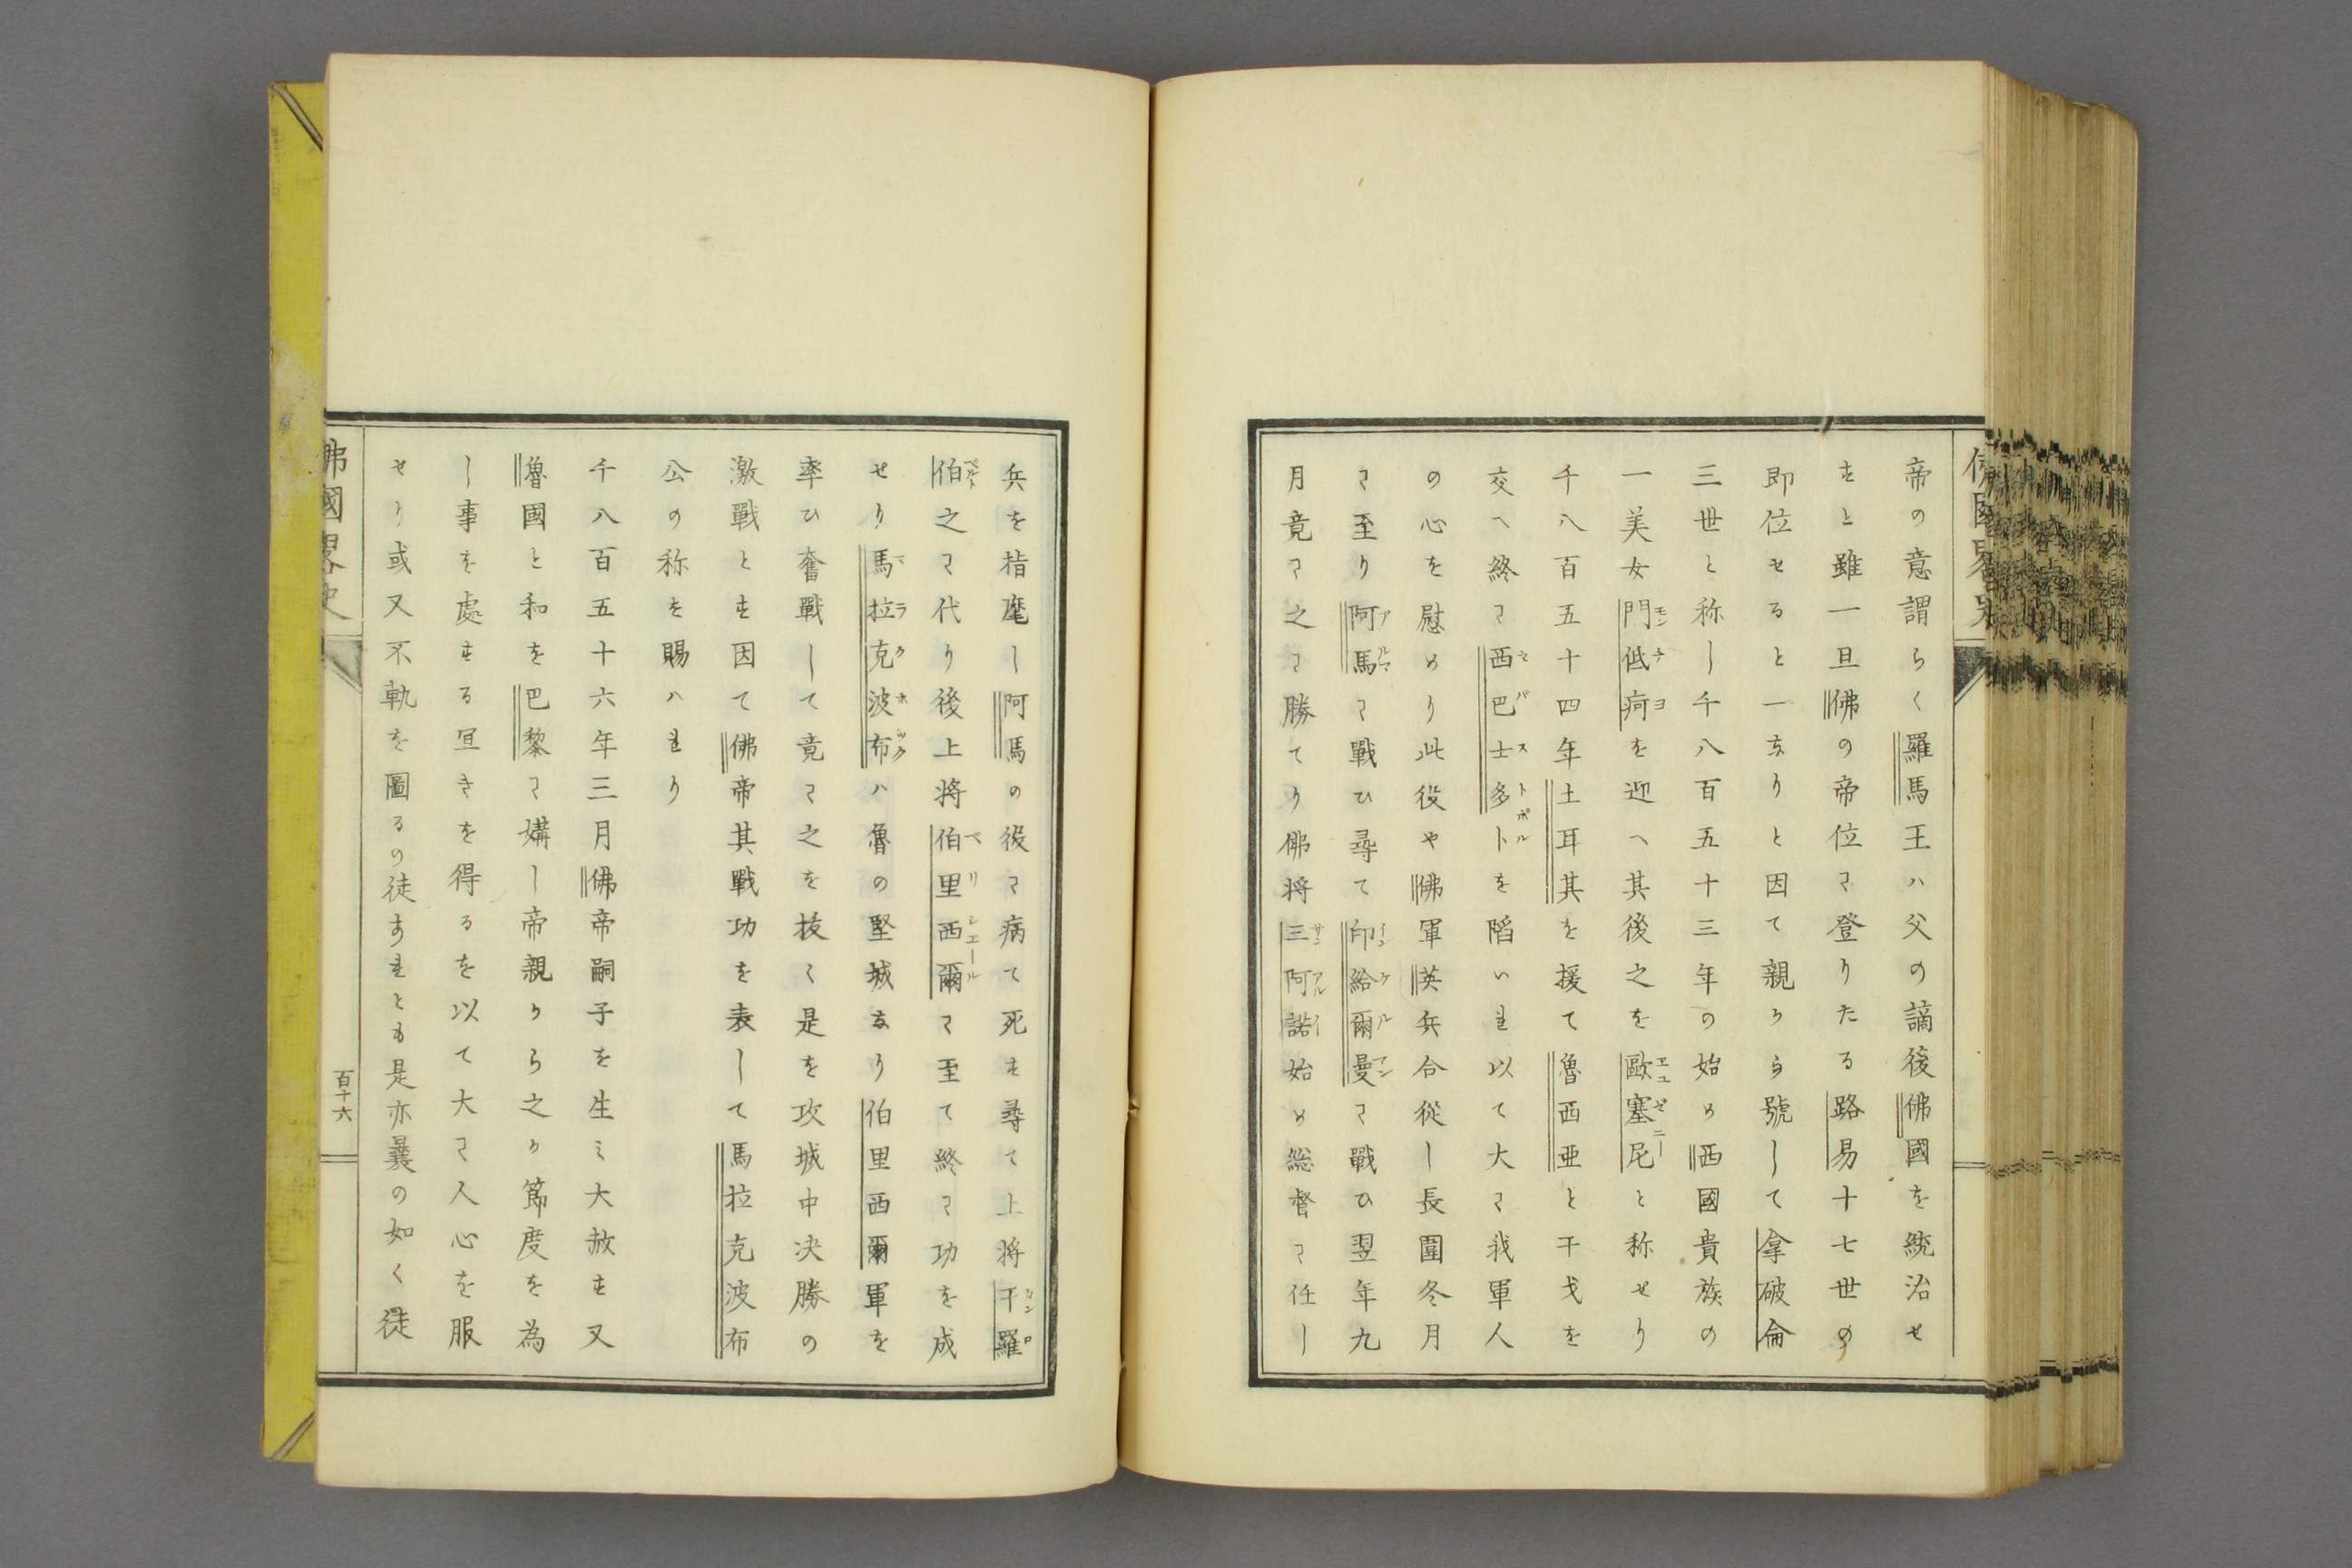 帝の意謂らく羅馬王ハ父の謫後佛國を統治せ
すと雖一旦佛の帝位に登りたる路易十七世の
即位せると一なりと因て親から號して拿破侖
三世と称し千八百五十三年の始め西國貴族の
一美女門低疴を迎へ其後之を歐塞尼と称せり
千八百五十四年土耳其を援て魯西亜と干戈を
交へ終に西巴士多卜を陥いれ以て大に我軍人
の心を慰めり此役や佛軍英兵合従し長圍冬月
に至り阿馬に戰ひ尋て印給爾曼に戰ひ翌年九
月竟に之に勝てり佛将三阿諾始め総督に任し
兵を指麾し阿馬の役に病て死す尋て上将干羅
伯之に代り後上将伯里西爾に至て終に功を成
せり馬拉克波布ハ魯の堅城なり伯里西爾軍を
率ひ奮戰して竟に之を抜く是を攻城中决勝の
激戰とす因て佛帝其戰功を表して馬拉克波布
公の称を賜ハれり
千八百五十六年三月佛帝嗣子を生ミ大赦す又
魯國と和を巴黎に媾し帝親から之か節度を為
し事を處する宜きを得るを以て大に人心を服
せり或又不軌を圖るの徒すれとも是亦曩の如く徒
佛國畧史
百十六